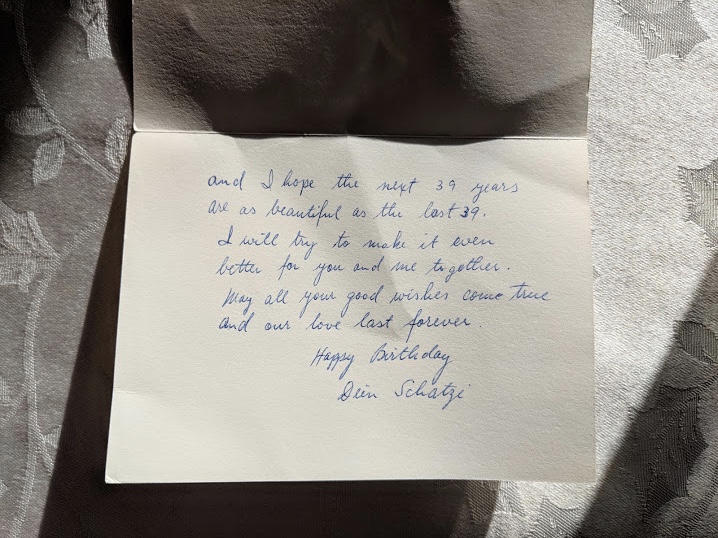 and I hope the next 39 years
are as beautiful as the last 39.
I will try to make it even
better for you and me together.
May all your good wishes come true
and our love last forever.
Happy Birthday
Dein Schatzi